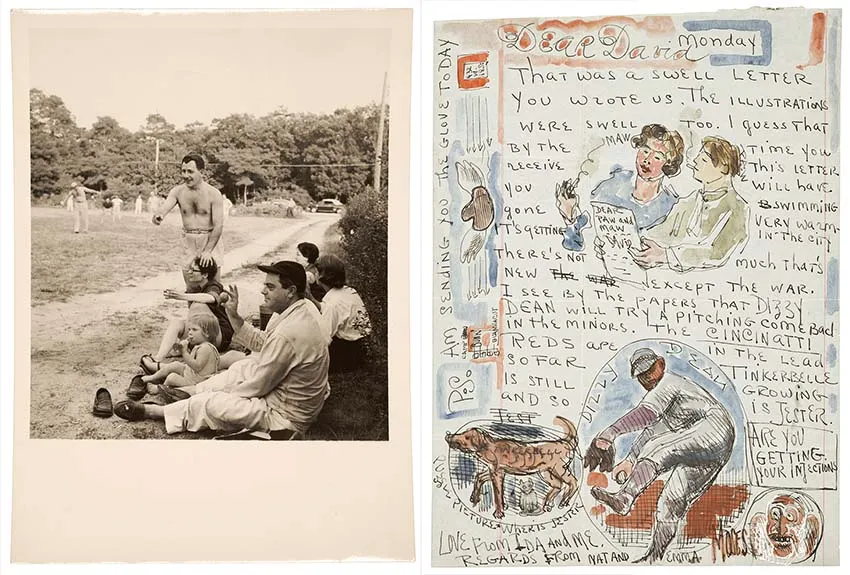 Dear David Monday
THAT WAS A SWELL LETTER
YOU WROTE US. THE ILLUSTRATIONS
WERE SWELL TOO. I GUESS THAT
BY THE TIME YOU
RECEIVE THIS LETTER
YOU WILL HAVE
gone SWIMMING
IT'S GETTING VERY WARM
IN THE CITY
THERE'S NOT much THAT'S
NEW EXCEPT THE WAR.
I SEE BY THE PAPERS THAT DIZZY
DEAN WILL TRY A PITCHING COME BACK
IN THE MINORS. THE CINCINATTI
REDS ARE IN THE LEAD
SO FAR TINKERBELLE
IS STILL GROWING
AND SO IS JESTER.
MAW
DEAR
PAW AND
MAW
DAVID
DIZZY DEAN
ARE YOU
GETTING
YOUR INJECTIONS
PICTURE WHERE IS JESTER
LOVE FROM IDA AND ME
REGARDS FROM NAT AND EMMA
MOSES
P.S. AM SENDING YOU THE GLOVE TODAY